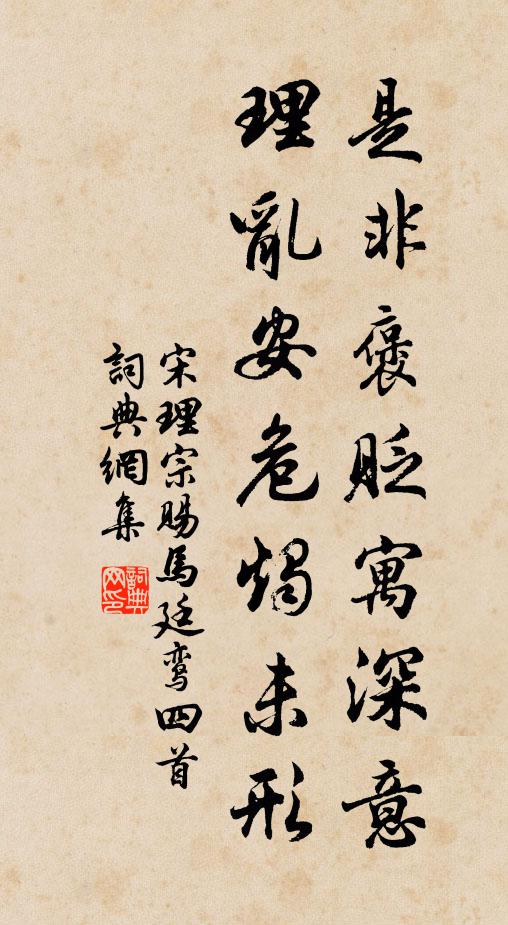 是非褒貶寓深意
理亂安危燭未形
宋理宗賜馬廷鸞四首
詞典網集
詞典網印